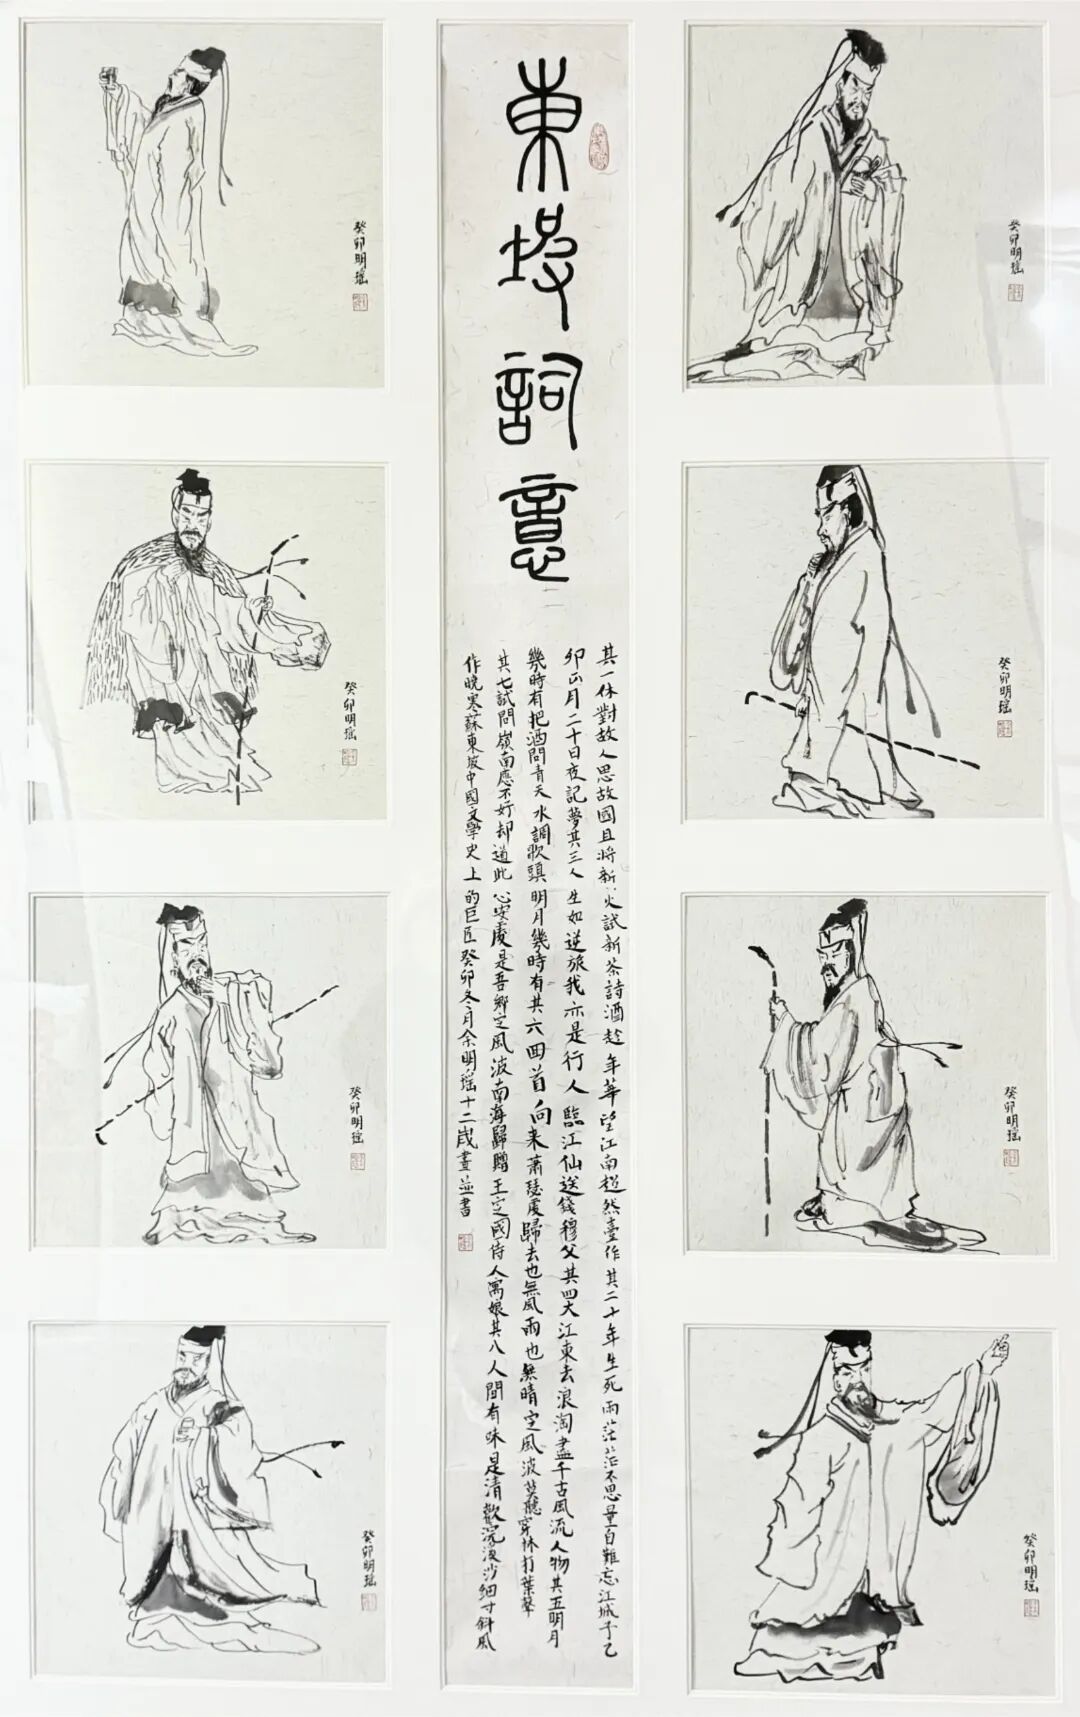 東坡詞意
其一休對故人思故國且將新火試新茶詩酒趁年華望江南超然臺作其二十年生死兩茫茫不思量自難忘江城子乙
卯正月二十日夜記夢其三人生如逆旅我亦是行人臨江仙送錢穆父其四大江東去浪淘盡千古風流人物其五明月
幾時有把酒問青天水調歌頭明月幾時有其六回首向来蕭瑟處歸去也無風雨也無晴定風波莫聽穿林打葉聲
其七試問嶺南應不好却道此心安處是吾鄉定風波南海歸贈王定國侍人寓娘其八人間有味是清歡浣溪沙細寸斜風
作曉寒蘇東坡中國文學史上的巨匠癸卯冬月余明瑶十二歲畫並書
癸卯明瑶
癸卯明瑶
癸卯明瑶
癸卯明瑶
癸卯明瑶
癸卯明瑶
癸卯明瑶
癸卯明瑶